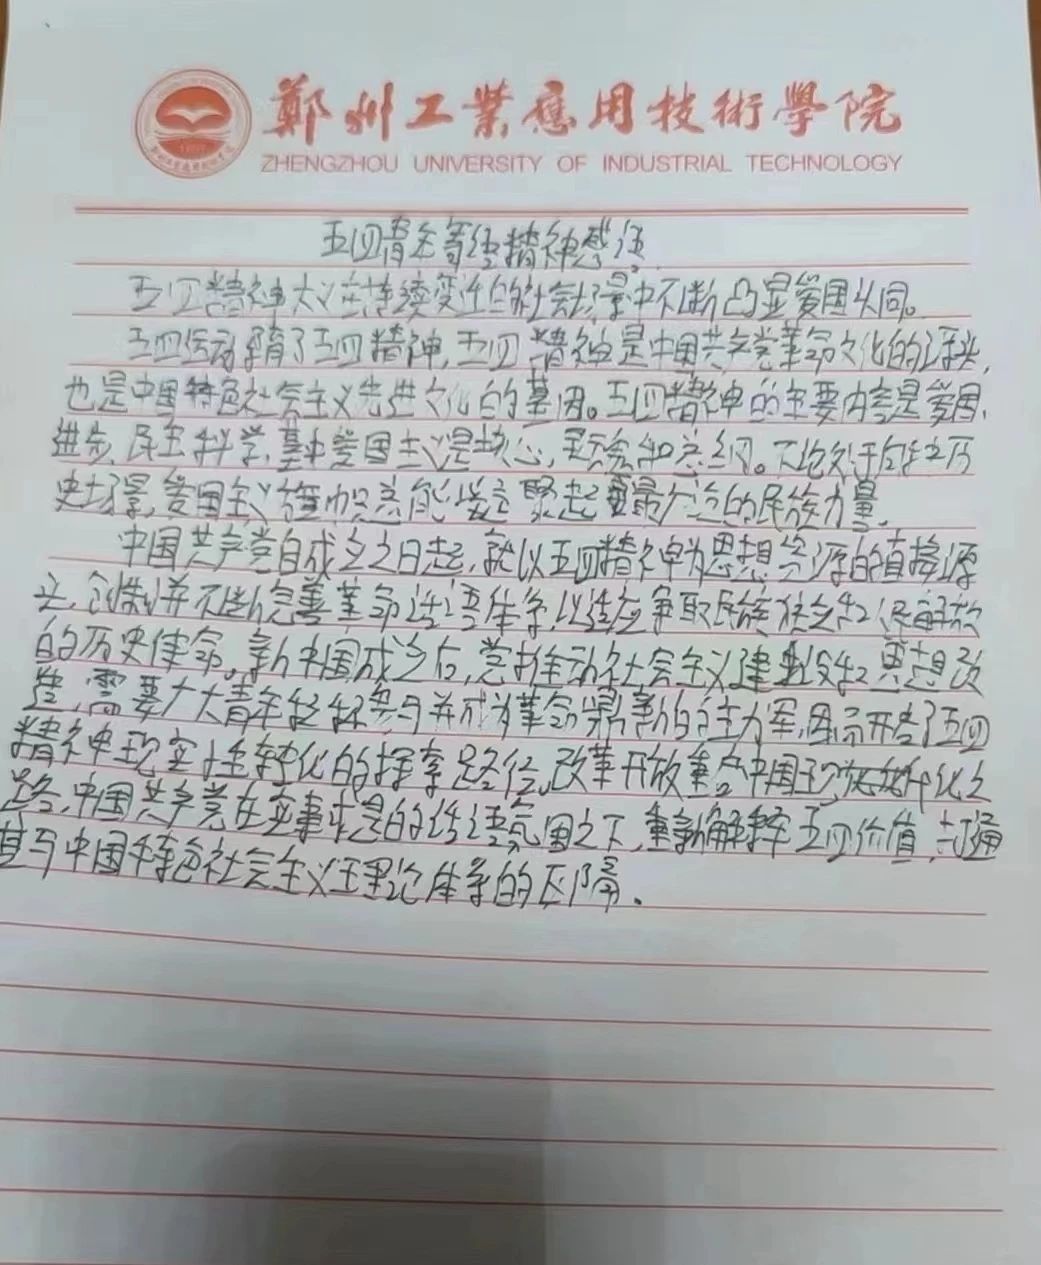 鄭州工業應用技術學院
ZHENGZHOU UNIVERSITY OF INDUSTRIAL TECHNOLOGY
五四青年等得精神感悟
五四精神大义在持续变迁的社会场景中不断凸显爱国认同。
五四运动孕育了五四精神,五四精神是中国共产党革命文化的源头,
也是中国特色社会主义先进文化的基因。五四精神的主要内容是爱国、
进步、民主、科学,其中爱国主义是核心,是先念和总纲。不论处于何种历
史场景,爱国主义旗帜总能凝聚起最广泛的民族力量。
中国共产党自成立之日起,就以五四精神为思想资源的直接源
头,创制并不断完善革命话语体系,以适应争取民族独立和人民解放
的历史使命。新中国成立后,党推动社会主义建设和思想改
造,需要广大青年积极参与并成为革命鼎新的主力军,因而开启了五四
精神现实性转化的探索路径。改革开放重启中国现代化之
路,中国共产党在实事求是的话语氛围之下,重新解释五四价值,打通
其与中国特色社会主义理论体系的区隔。